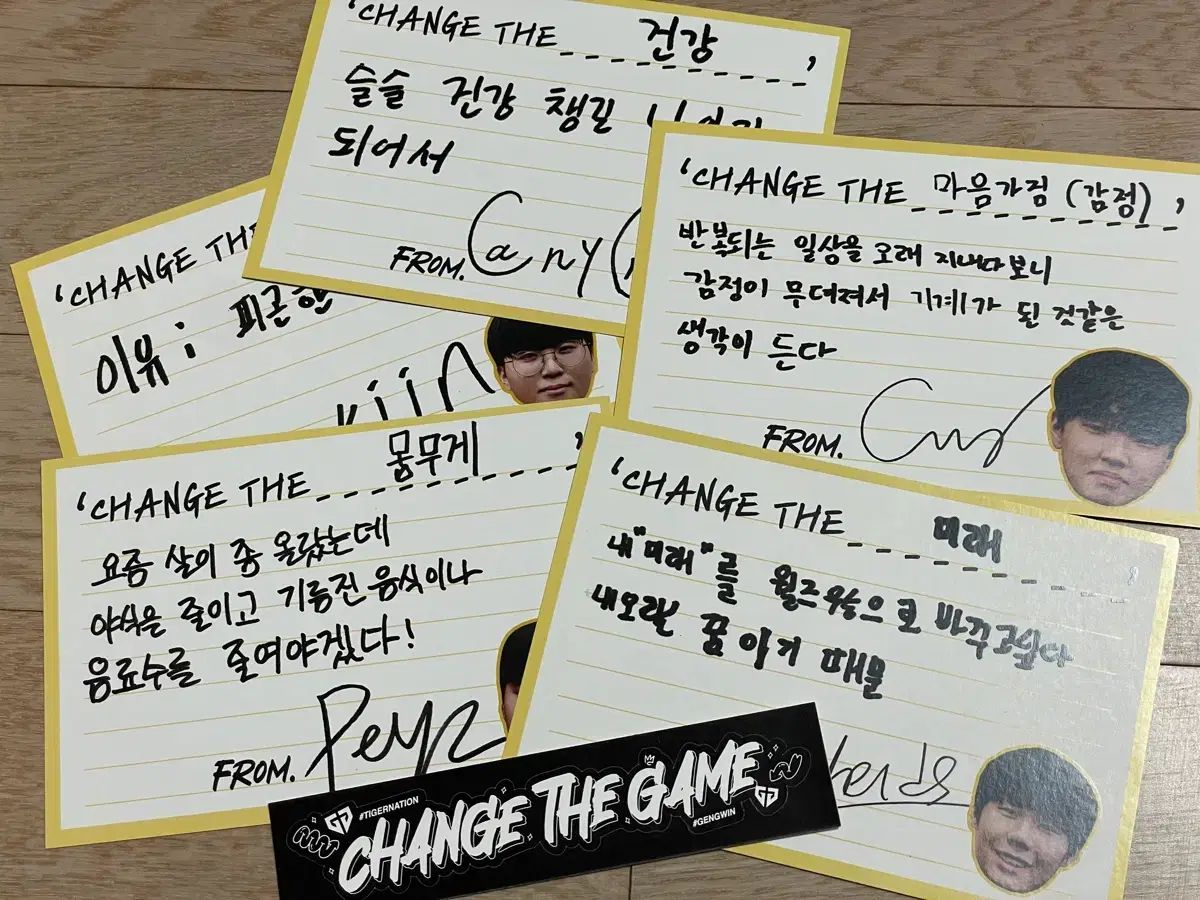 'CHANGE THE 건강'
슬슬 건강 챙길
되어서
FROM. Cany
'CHANGE THE 마음가짐 (감정)'
반복되는 일상을 오래 지내다보니
감정이 무뎌져서 기계가 된 것같은
생각이 든다
FROM.
'CHANGE THE
이유 : 피곤한
kiin
'CHANGE THE 몸무게'
요즘 살이 좀 올랐는데
야식은 줄이고 기름진 음식이나
음료수를 줄여야겠다!
FROM. Peyz
'CHANGE THE 미래
내 "미래"를 월즈우승으로 바꾸고싶다
내오랜 꿈 이기 때문
#TIGERNATION
CHANGE THE GAME
#GENGWIN